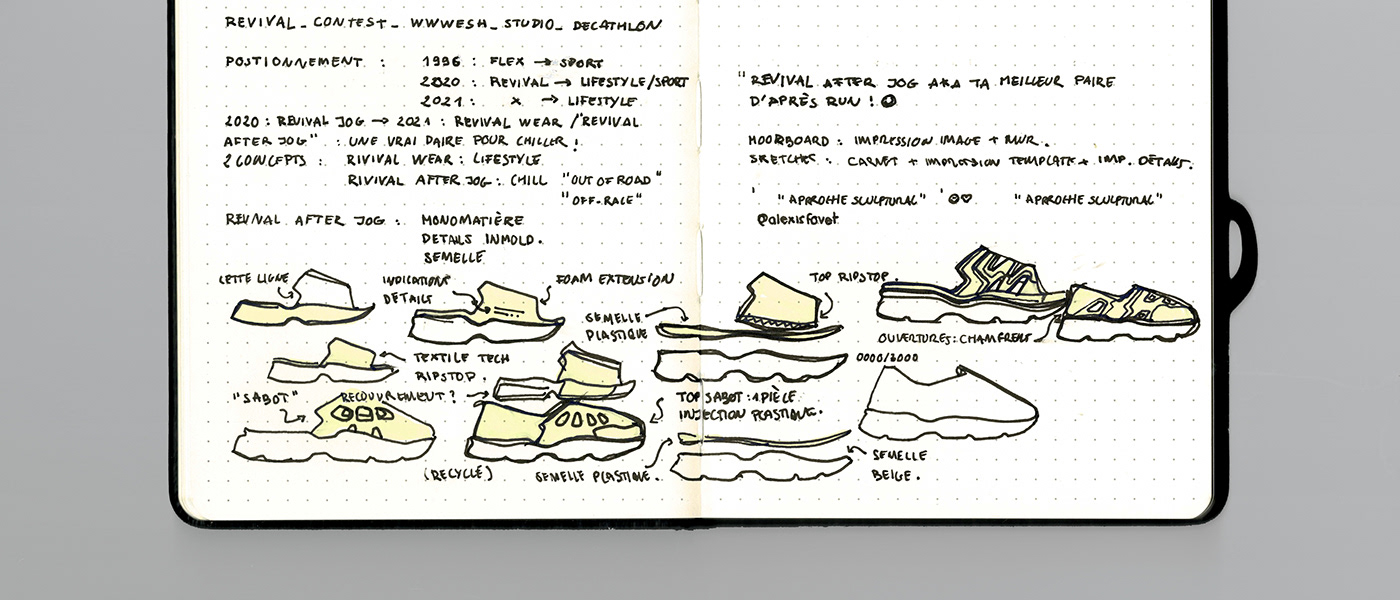 REVIVAL_CONTEST_ WWWESH_STUDIO_ DECATHLON
POSTIONNEMENT : 1996 : FLEX → SPORT
2020 : REVIVAL → LIFESTYLE/SPORT
2021 : x → LIFESTYLE
2020 : REVIVAL JOG → 2021 : REVIVAL WEAR /"REVIVAL
AFTER JOG" : UNE VRAI PAIRE POUR CHILLER !
2 CONCEPTS : RIVIVAL WEAR : LIFESTYLE
RIVIVAL AFTER JOG : CHILL "OUT OF ROAD"
"OFF-RACE"
REVIVAL AFTER JOG : MONOMATIÈRE
DETAILS INMOLD.
SEMELLE
CETTE LIGNE
INDICATIONS
DÉTAILS
FOAM EXTENSION
SEMELLE
PLASTIQUE
TEXTILE TECH
RIPSTOP.
"SABOT"
RECOUVREMENT ?
(RECYCLÉ)
SEMELLE PLASTIQUE.
"REVIVAL AFTER JOG AKA TA MEILLEUR PAIRE
D'APRÈS RUN !
MOODBOARD : IMPRESSION IMAGE + MUR.
SKETCHES : CARNET + IMPRESSION TEMPLATE + IMP. DÉTAILS.
"APPROCHE SCULPTURAL" "APPROCHE SCULPTURAL"
@alexisfavet
TOP RIPSTOP.
OUVERTURES : CHAMFREINT
0000/3000
TOP SABOT : 1 PIÈCE
INJECTION PLASTIQUE.
SEMELLE
BEIGE.